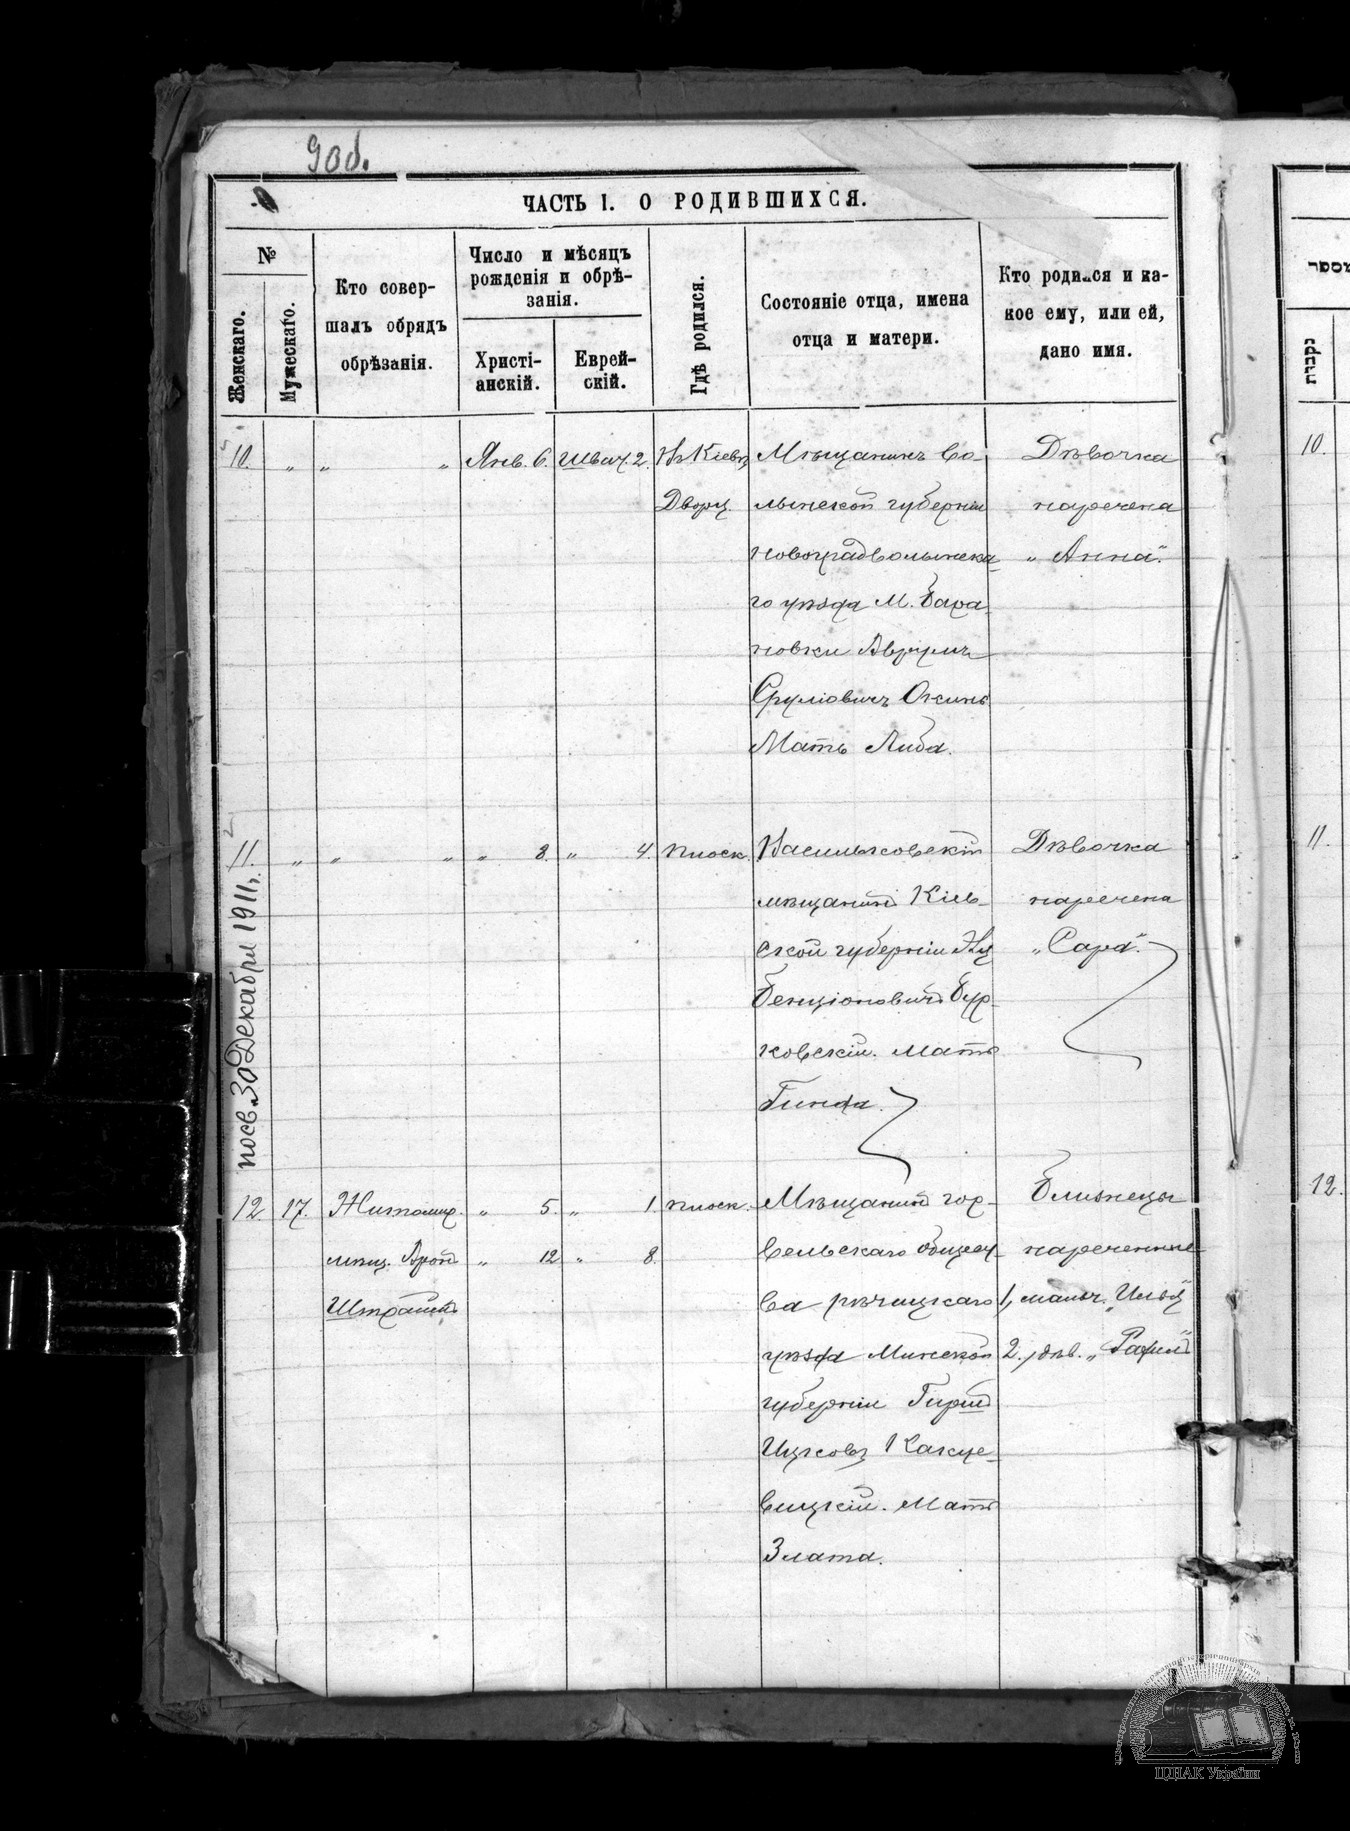 9 об.
ЧАСТЬ I. О РОДИВШИХСЯ.
№
Женскаго.
Мужескаго.
Кто совер-
шалъ обрядъ
обрѣзанія.
Число и мѣсяцъ
рожденія и обрѣ-
занія.
Христі-
анскій.
Еврей-
скій.
Гдѣ родился.
Состояніе отца, имена
отца и матери.
Кто родился и ка-
кое ему, или ей,
дано имя.
10. „ „ „ Янв. 6. Шват. 2. Въ Кіевѣ
Дворц.
Мѣщанинъ Во-
лынской губерніи
новоградволынска-
го уѣзда М. Бара-
новки Аврумъ
Сруліовичъ
Мать Либа.
Дѣвочка
наречена
„Анна“.
11. „ „ „ „ 8. „ 4. плоск.
Васильковскій
мѣщанинъ Кіев-
ской губерніи
Бенціоновичъ Бур-
ковскій. Мать
Гинда.
Дѣвочка
наречена
„Сара“.
посв. 30 Декабри 1911 г.
12. 17. Житомир. „ 5. „ 1. плоск.
мѣщ. Арон
„ 12 „ 8.
Мѣщанинъ гор-
вельскаго общест-
ва рѣчицкаго
уѣзда Минской
губерніи Гирш
Ицковъ
вицкій. Мать
Злата.
Близнецы
нареченные
1, мальч. „Илья“
2., дѣв. „Рахиль“
מספר
נקבות
10.
11.
12.
ЦДІАК України